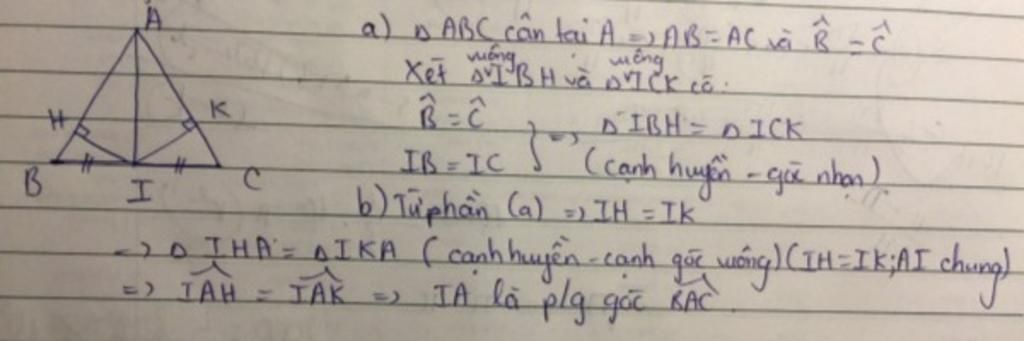 A
H
K
B
I
C
a) Δ ABC cân tại A => AB = AC và B̂ = Ĉ
Xét Δ vuông IBH và Δ vuông ICK có:
B̂ = Ĉ
IB = IC } => Δ IBH = Δ ICK
(cạnh huyền - góc nhọn)
b) Từ phần (a) => IH = IK
=> Δ IHA = Δ IKA (cạnh huyền - cạnh góc vuông) (IH = IK; AI chung)
=> IAH = IAK => IA là p/g góc BAC.